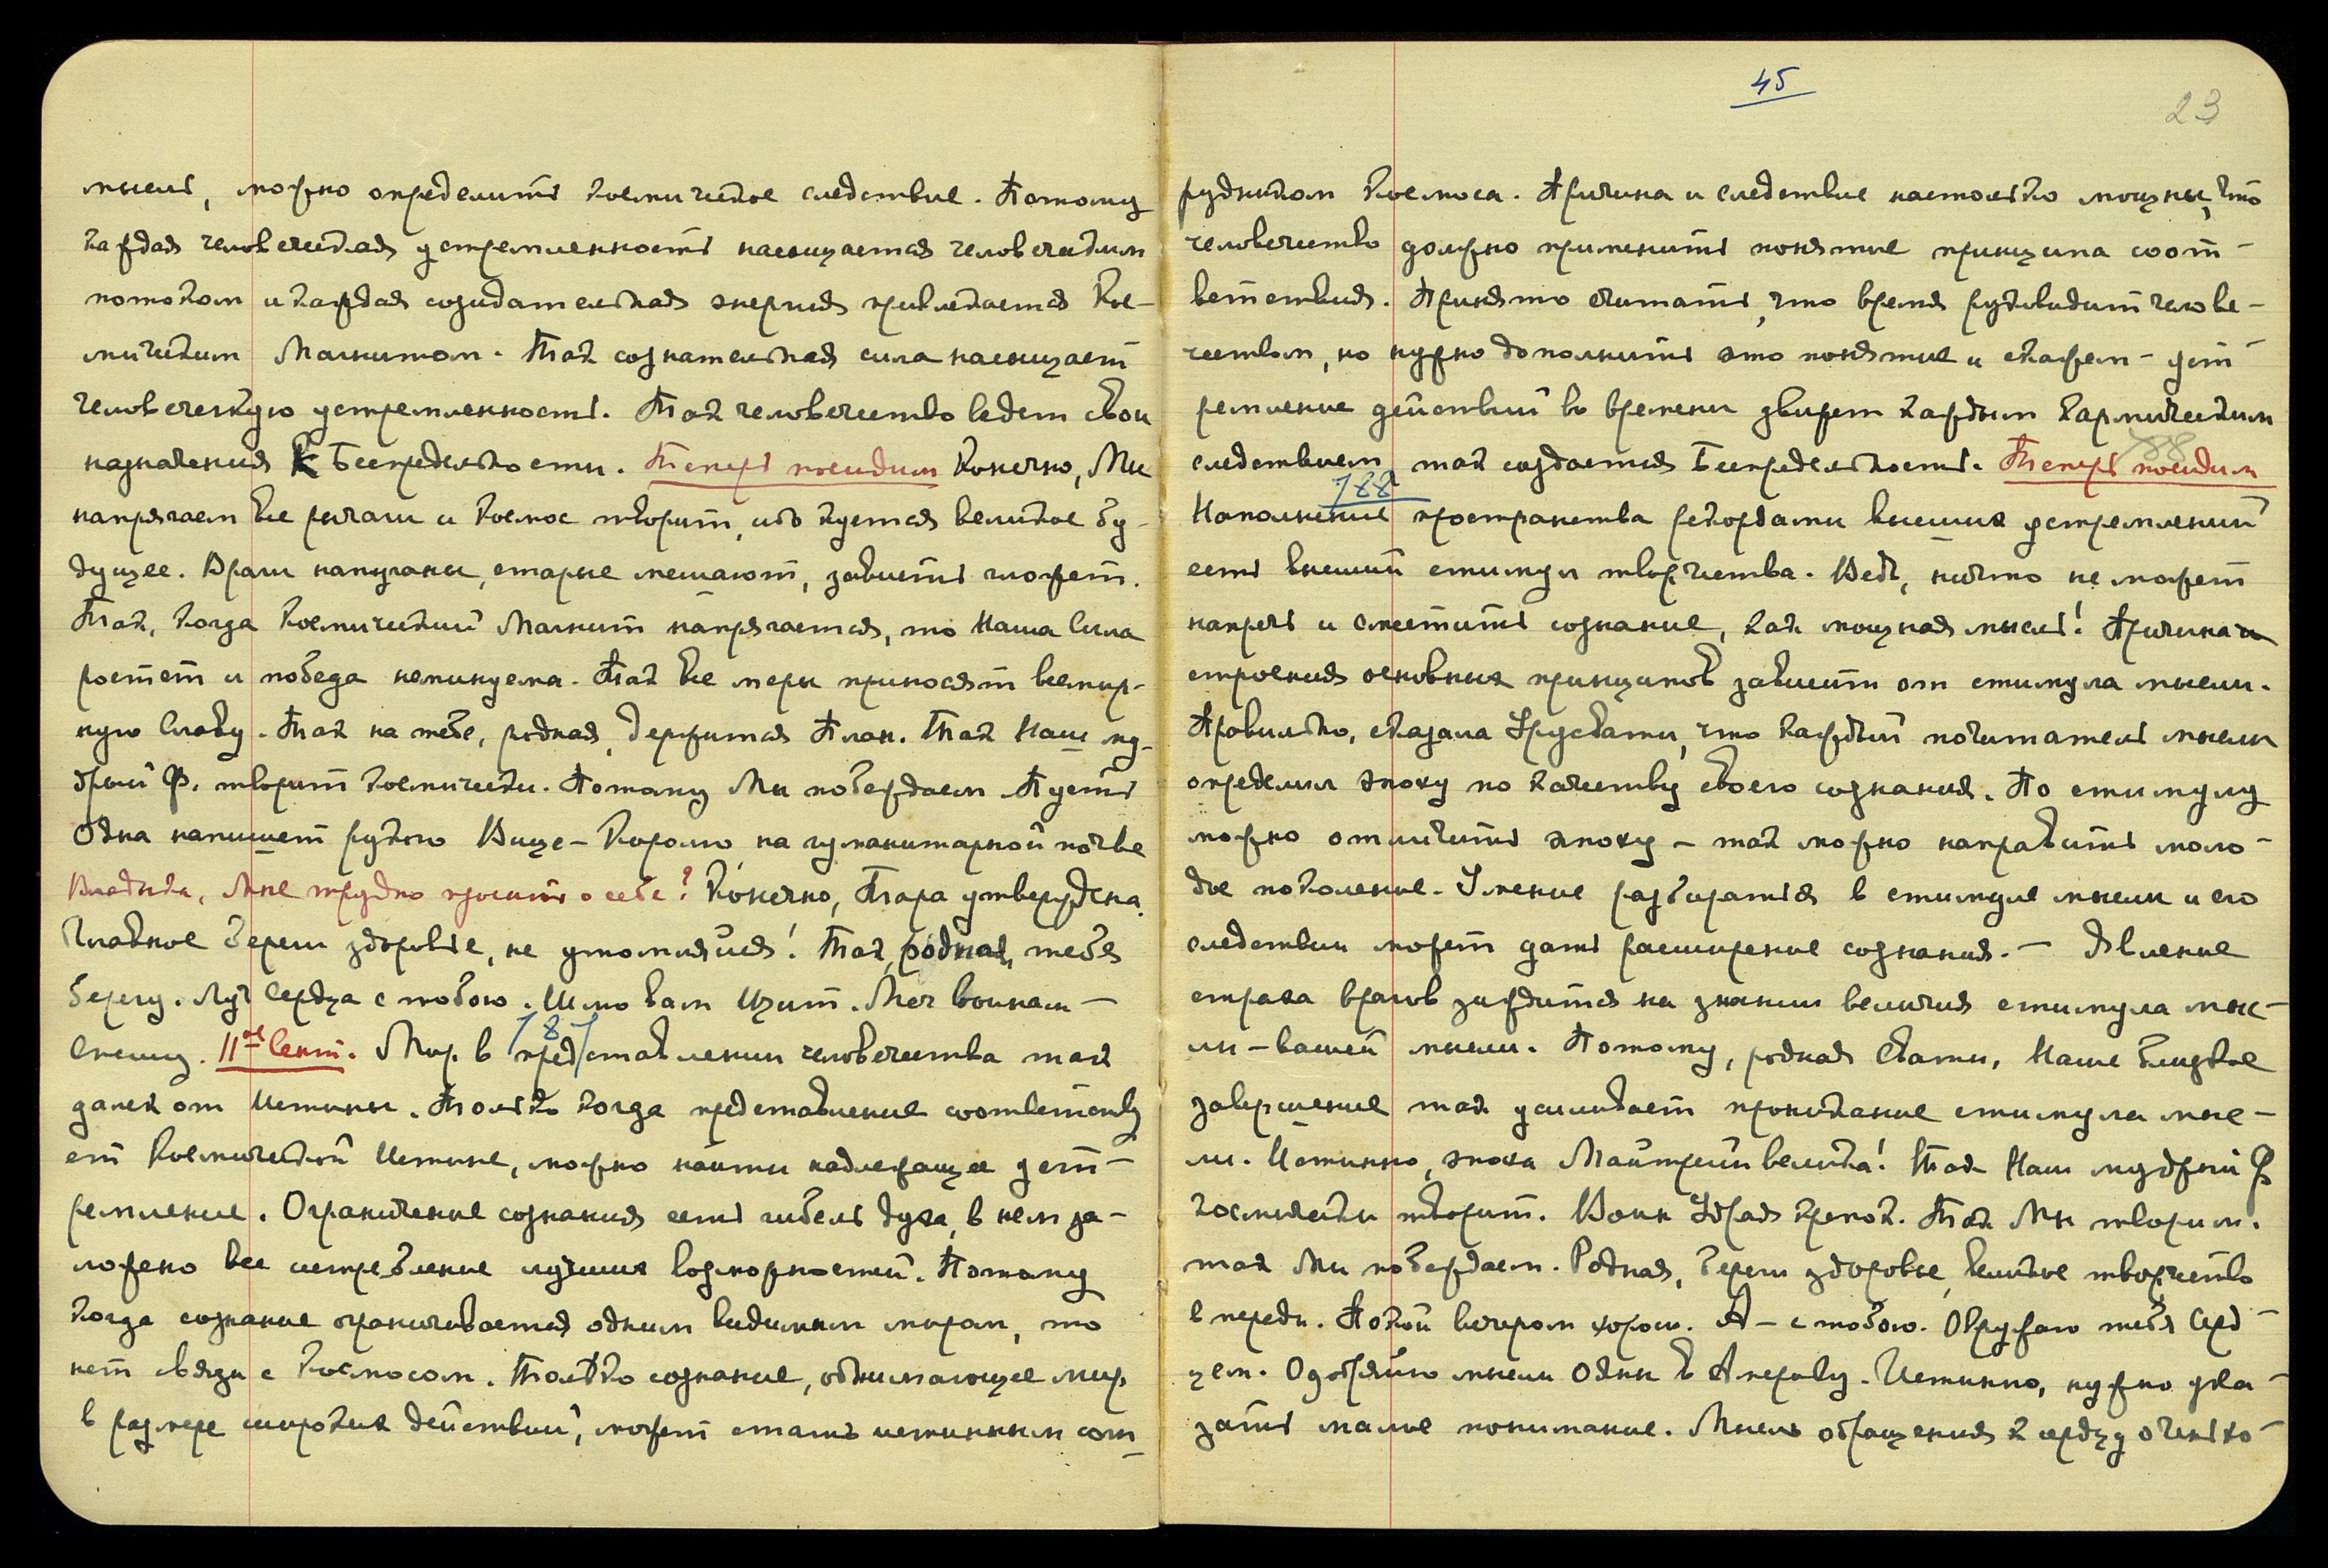 мысли, можно определить космическое следствие. Потому
каждая человеческая устремленность насыщается человеческим
потоком и каждая созидательская энергия привлекается Кос-
мическим Магнитом. Так сознательская сила насыщает
человеческую устремленность. Так человечество ведет свои
назначения к Беспредельности. Теперь посидим Конечно, Мы
напрягаем все рычаги и Космос творит, ибо куется великое бу-
дущее. Враги напуганы, старые мешают, зависть гложет.
Так, когда Космический Магнит напрягается, то Наша Сила
ростет и победа неминуема. Так все меры приносят всемир-
ную Славу. Так на тебе, родная, держится План. Так Наш му-
дрый Ф. творит космически. Потому Мы побеждаем. Пусть
Одна напишет Вице-Королю на гуманитарной почве
Владыка, Мне трудно просить о себе? Конечно, Тара утверждена.
Главное береги здоровье, не утомляйся! Так, родная, тебя
берегу. Луч Сердца с тобою. Шлю вам Щит. Меч воинам –
Спешу. 11ое Сент. Мир в представлении человечества так
787
далек от Истины. Только когда представление соответству
ет Космической Истине, можно найти надлежащее уст-
ремление. Ограничение сознания есть гибель духа, в нем за-
ложено все истребление лучших возможностей. Потому
когда сознание ограничивается одним видимым миром, то
нет связи с Космосом. Только сознание, обнимающее мир
в размере широких действий, может стать истинным сот-
45
23
рудником Космоса. Причина и следствие настолько мощны, что
человечество должно применить понятие принципа соот-
ветствия. Принято считать, что время руководит челове-
чеством, но нужно дополнить это понятие и скажем – уст-
ремление действий во времени движет каждым кармическим
следствием, так создается Беспредельность. Теперь посидим
788
788
Наполнение пространства рекордами высших устремлений
есть высший стимул творчества. Ведь, ничто не может
напречь и сместить сознание, как мощная мысль! Причина
строения основных принципов зависит от стимула мысли.
Правильно, сказала Урусвати, что каждый почитатель мысли
определил эпоху по качеству своего сознания. По стимулу
можно отличить эпоху – так можно направить моло-
дое поколение. Умение разбираться в стимуле мысли и его
следствии может дать расширение сознания. – Явление
страха врагов зиждится на знании величия стимула мыс-
ли – вашей мысли. Потому, родная Свати, Наше близкое
завершение так усиливает проникание стимула мыс-
ли. Истинно, эпоха Майтрейи велика! Так Наш мудрый Ф
космически творит. Воин Удрая крепок. Так Мы творим.
так Мы побеждаем. Родная, береги здоровье, великое творчество
впереди. Покой вечером хорош. Я – с тобою. Окружаю тебя Серд-
цем. Одобряю мысли Одны в Америку. Истинно, нужно ука-
зать малое понимание. Мысль обращения к сердцу очень хо-